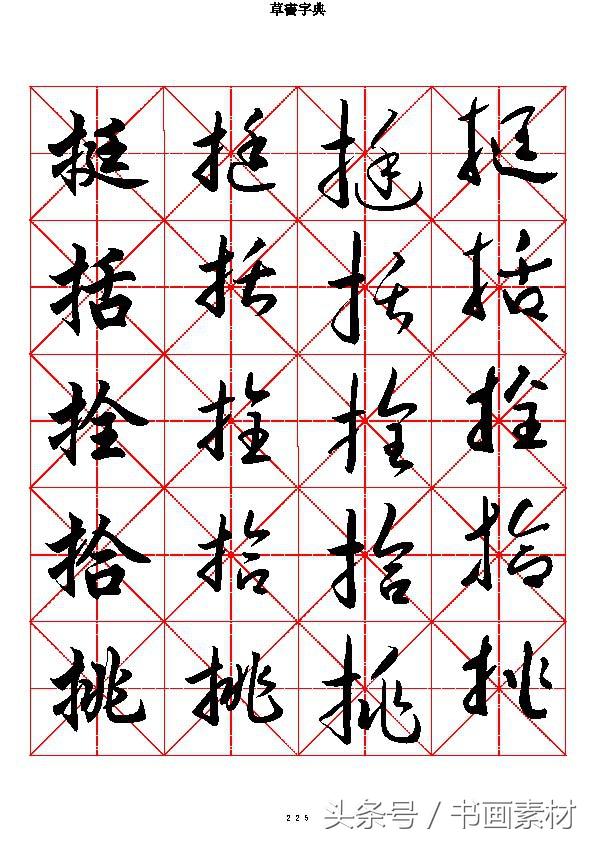 草書字典
挺挺挺挺
括括括括
拴拴拴拴
拾拾拾拾
挑挑挑挑
225
头条号 / 书画素材